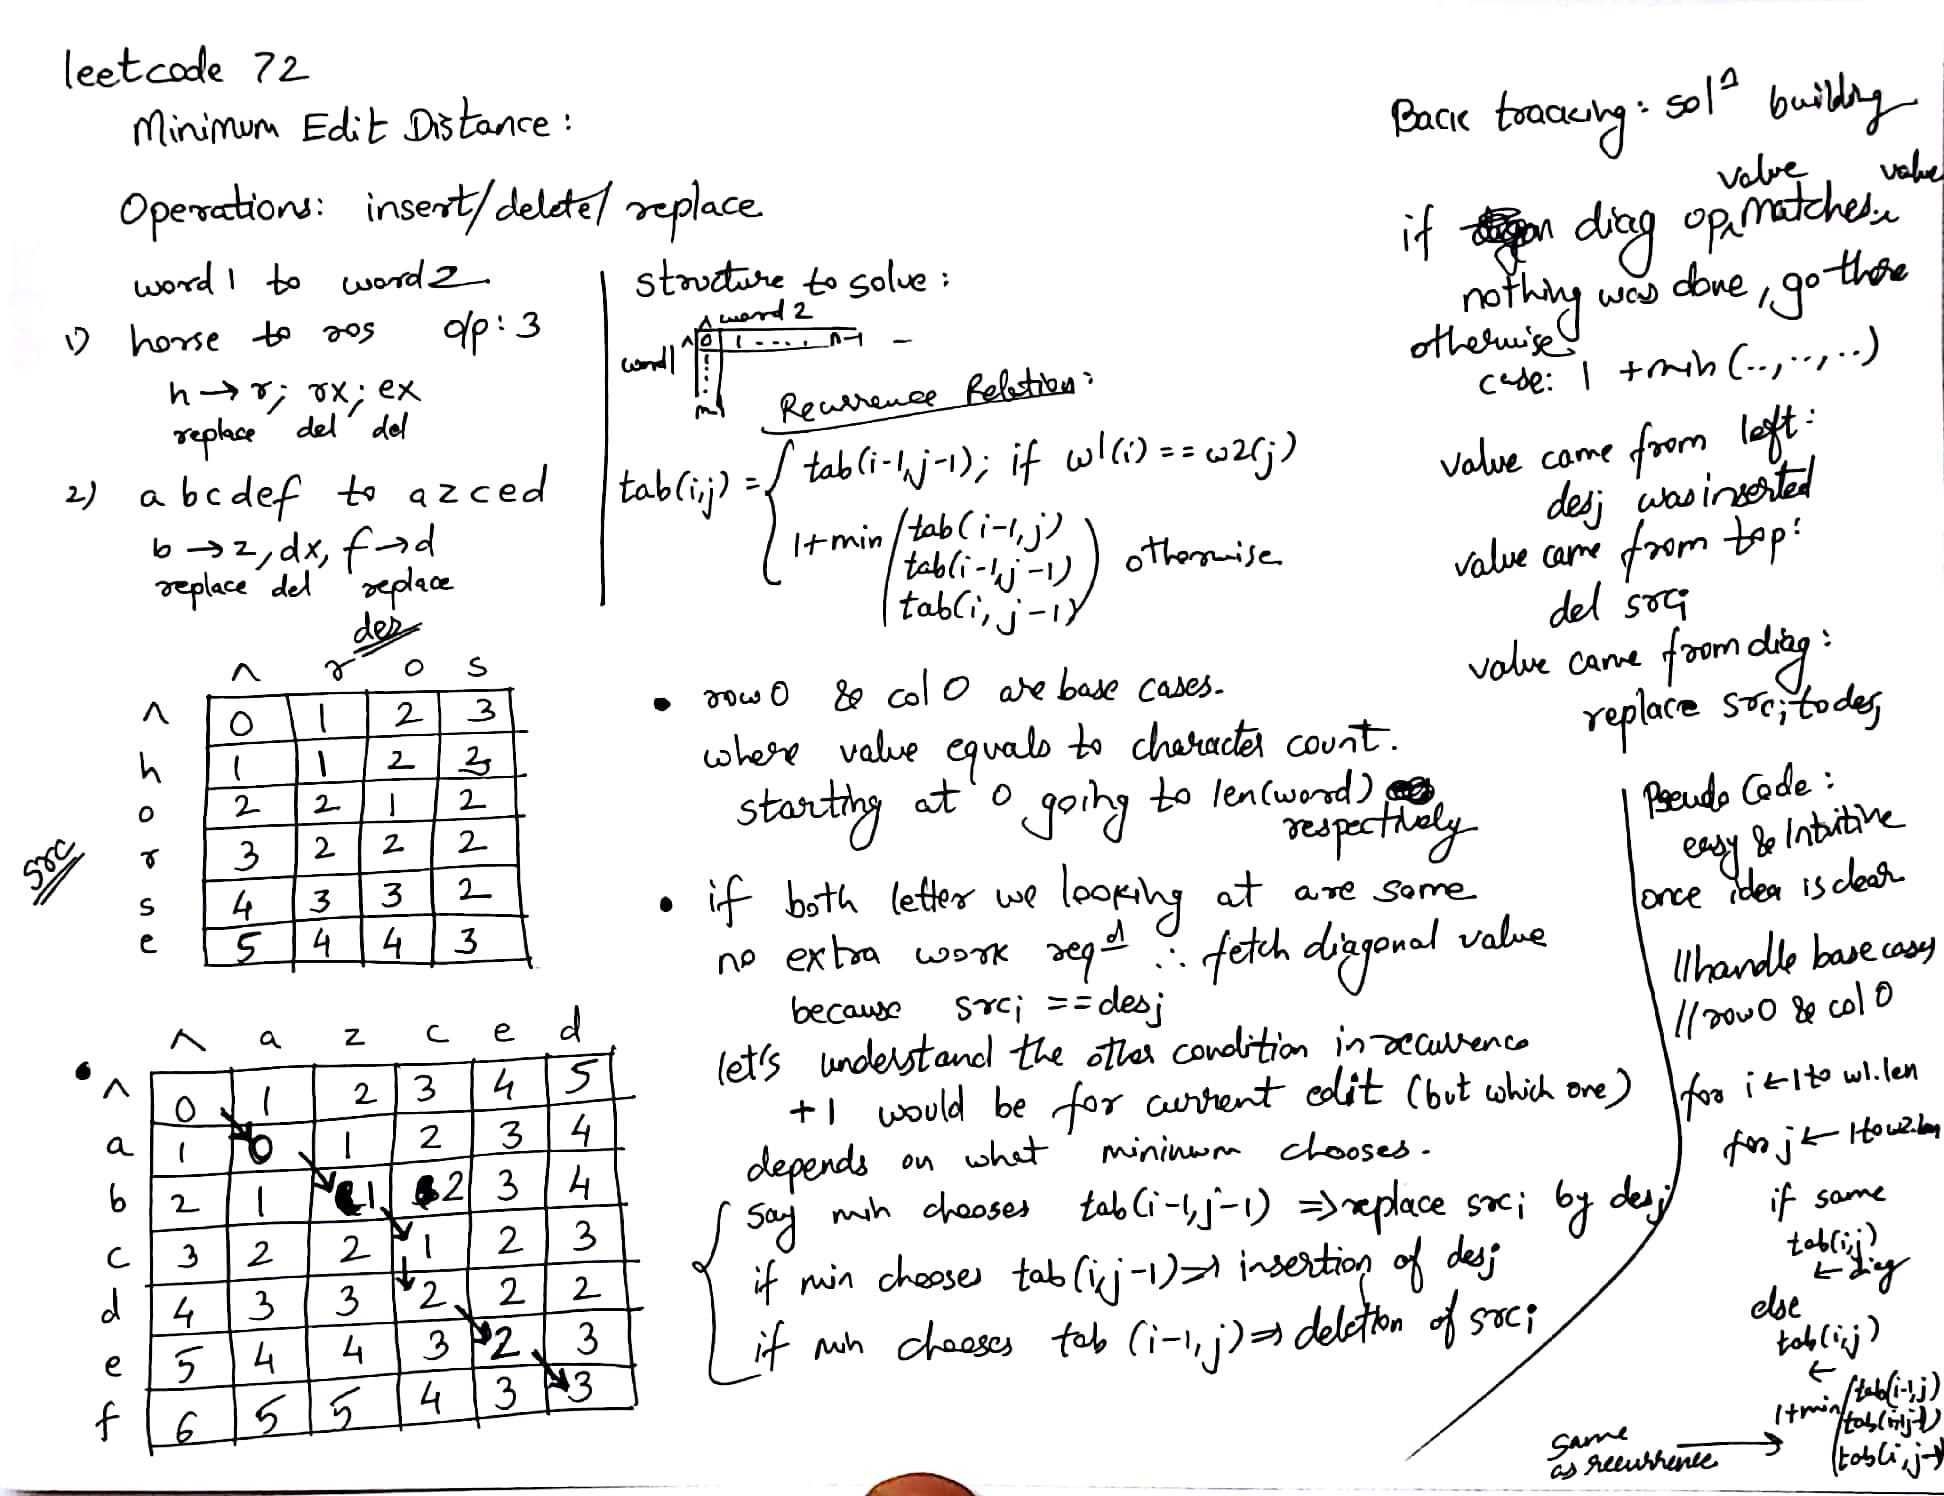 leetcode 72
Minimum Edit Distance:
Operations: insert/delete/replace
word1 to word2
1) horse to ros o/p: 3
h→r; rx; ex
replace del del
2) abcdef to azced
b→z, dx, f→d
replace del replace
structure to solve:
^ word 2
word1 ^ 0 1 .... n-1
m-1
Recurrence Relation:
tab(i,j) = { tab(i-1,j-1); if w1(i) == w2(j)
1+min (tab(i-1,j)
tab(i-1,j-1)
tab(i,j-1)) otherwise
des
^ r o s
^ 0 1 2 3
h 1 1 2 3
o 2 2 1 2
src
r 3 2 2 2
s 4 3 3 2
e 5 4 4 3
^ a z c e d
^ 0 1 2 3 4 5
a 1 0 1 2 3 4
b 2 1 1 2 3 4
c 3 2 2 1 2 3
d 4 3 3 2 2 2
e 5 4 4 3 2 3
f 6 5 5 4 3 3
• row 0 & col 0 are base cases.
where value equals to character count.
starting at 0 going to len(word)
respectively
• if both letter we looking at are same
no extra work reqd ∴ fetch diagonal value
because srci == desj
let's understand the other condition in recurrence
+1 would be for current edit (but which one)
depends on what minimum chooses.
say min chooses tab(i-1,j-1) ⇒ replace srci by desj
if min chooses tab(i,j-1) ⇒ insertion of desj
if min chooses tab (i-1,j) ⇒ deletion of srci
Back tracking: soln building
value value
if diag op matches
nothing was done, go there
otherwise
case: 1 + min(..,..,..)
value came from left:
desj was inserted
value came from top:
del srci
value came from diag:
replace srci to desj
Pseudo Code:
easy & Intuitive
once idea is clear
//handle base cases
//row 0 & col 0
for i ← 1 to w1.len
for j ← 1 to w2.len
if same
tab(i,j)
← diag
else
tab(i,j)
←
1+min (tab(i-1,j)
tab(i-1,j-1)
tab(i,j-1)
same
as recurrence →